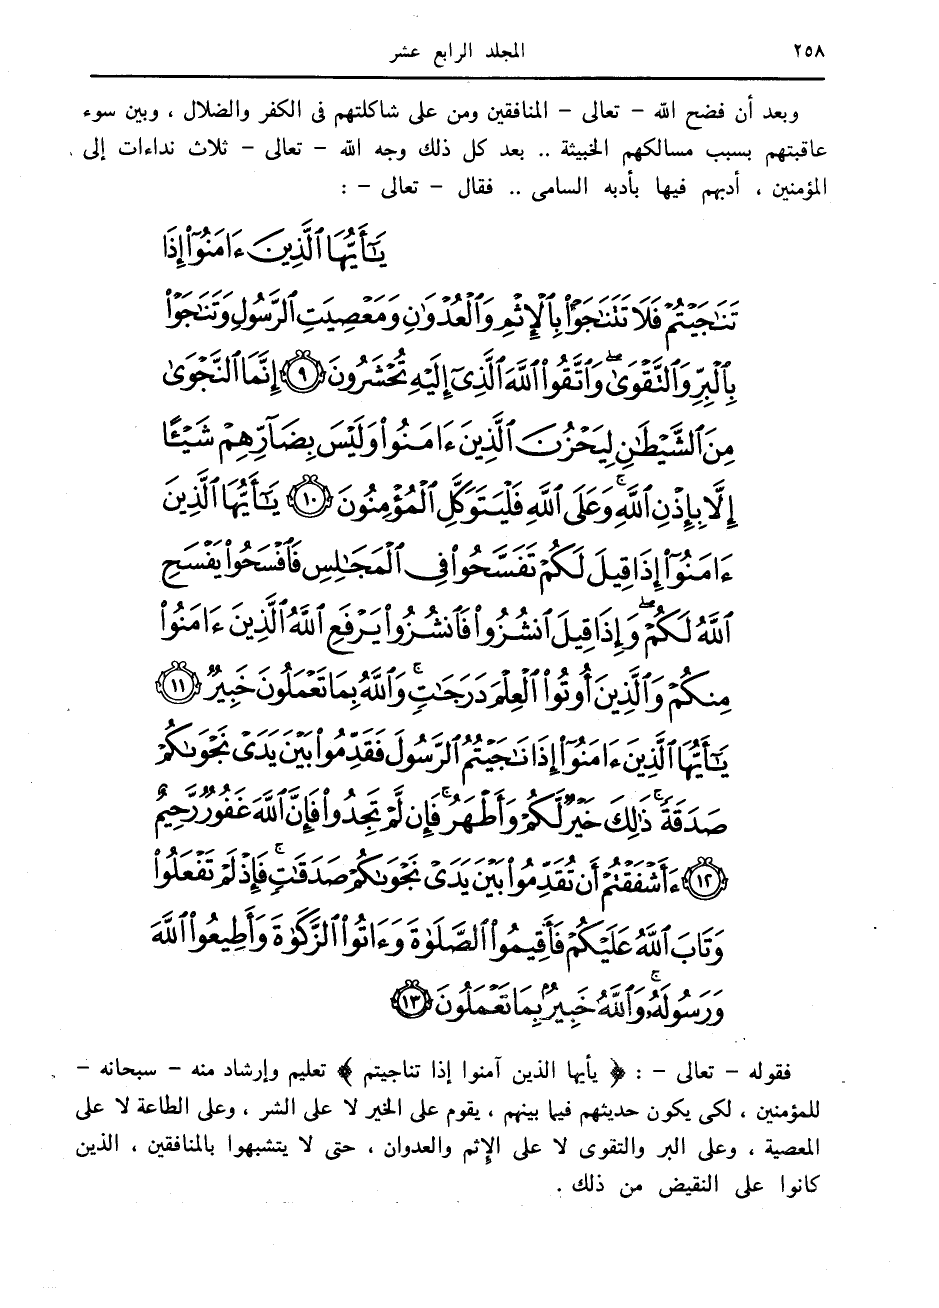 ٢٥٨ المجلد الرابع عشر
وبعد أن فضح الله – تعالى – المنافقين ومن على شاكلتهم فى الكفر والضلال ، وبين سوء
عاقبتهم بسبب مسالكهم الخبيثة .. بعد كل ذلك وجه الله – تعالى – ثلاث نداءات إلى
المؤمنين ، أدبهم فيها بأدبه السامى .. فقال – تعالى – :
يَٰٓأَيُّهَا ٱلَّذِينَ ءَامَنُوٓا۟ إِذَا
تَنَٰجَيْتُمْ فَلَا تَتَنَٰجَوْا۟ بِٱلْإِثْمِ وَٱلْعُدْوَٰنِ وَمَعْصِيَتِ ٱلرَّسُولِ وَتَنَٰجَوْا۟
بِٱلْبِرِّ وَٱلتَّقْوَىٰ ۖ وَٱتَّقُوا۟ ٱللَّهَ ٱلَّذِىٓ إِلَيْهِ تُحْشَرُونَ ٩ إِنَّمَا ٱلنَّجْوَىٰ
مِنَ ٱلشَّيْطَٰنِ لِيَحْزُنَ ٱلَّذِينَ ءَامَنُوا۟ وَلَيْسَ بِضَآرِّهِمْ شَيْـًٔا
إِلَّا بِإِذْنِ ٱللَّهِ ۚ وَعَلَى ٱللَّهِ فَلْيَتَوَكَّلِ ٱلْمُؤْمِنُونَ ١٠ يَٰٓأَيُّهَا ٱلَّذِينَ
ءَامَنُوٓا۟ إِذَا قِيلَ لَكُمْ تَفَسَّحُوا۟ فِى ٱلْمَجَٰلِسِ فَٱفْسَحُوا۟ يَفْسَحِ
ٱللَّهُ لَكُمْ ۖ وَإِذَا قِيلَ ٱنشُزُوا۟ فَٱنشُزُوا۟ يَرْفَعِ ٱللَّهُ ٱلَّذِينَ ءَامَنُوا۟
مِنكُمْ وَٱلَّذِينَ أُوتُوا۟ ٱلْعِلْمَ دَرَجَٰتٍ ۚ وَٱللَّهُ بِمَا تَعْمَلُونَ خَبِيرٌ ١١
يَٰٓأَيُّهَا ٱلَّذِينَ ءَامَنُوٓا۟ إِذَا نَٰجَيْتُمُ ٱلرَّسُولَ فَقَدِّمُوا۟ بَيْنَ يَدَىْ نَجْوَىٰكُمْ
صَدَقَةً ۚ ذَٰلِكَ خَيْرٌ لَّكُمْ وَأَطْهَرُ ۚ فَإِن لَّمْ تَجِدُوا۟ فَإِنَّ ٱللَّهَ غَفُورٌ رَّحِيمٌ
١٢ ءَأَشْفَقْتُمْ أَن تُقَدِّمُوا۟ بَيْنَ يَدَىْ نَجْوَىٰكُمْ صَدَقَٰتٍ ۚ فَإِذْ لَمْ تَفْعَلُوا۟
وَتَابَ ٱللَّهُ عَلَيْكُمْ فَأَقِيمُوا۟ ٱلصَّلَوٰةَ وَءَاتُوا۟ ٱلزَّكَوٰةَ وَأَطِيعُوا۟ ٱللَّهَ
وَرَسُولَهُۥ ۚ وَٱللَّهُ خَبِيرٌۢ بِمَا تَعْمَلُونَ ١٣
فقوله – تعالى – : ﴿ يأيها الذين آمنوا إذا تناجيتم ﴾ تعليم وإرشاد منه – سبحانه –
للمؤمنين ، لكى يكون حديثهم فيما بينهم ، يقوم على الخير لا على الشر ، وعلى الطاعة لا على
المعصية ، وعلى البر والتقوى لا على الإثم والعدوان ، حتى لا يتشبهوا بالمنافقين ، الذين
كانوا على النقيض من ذلك .